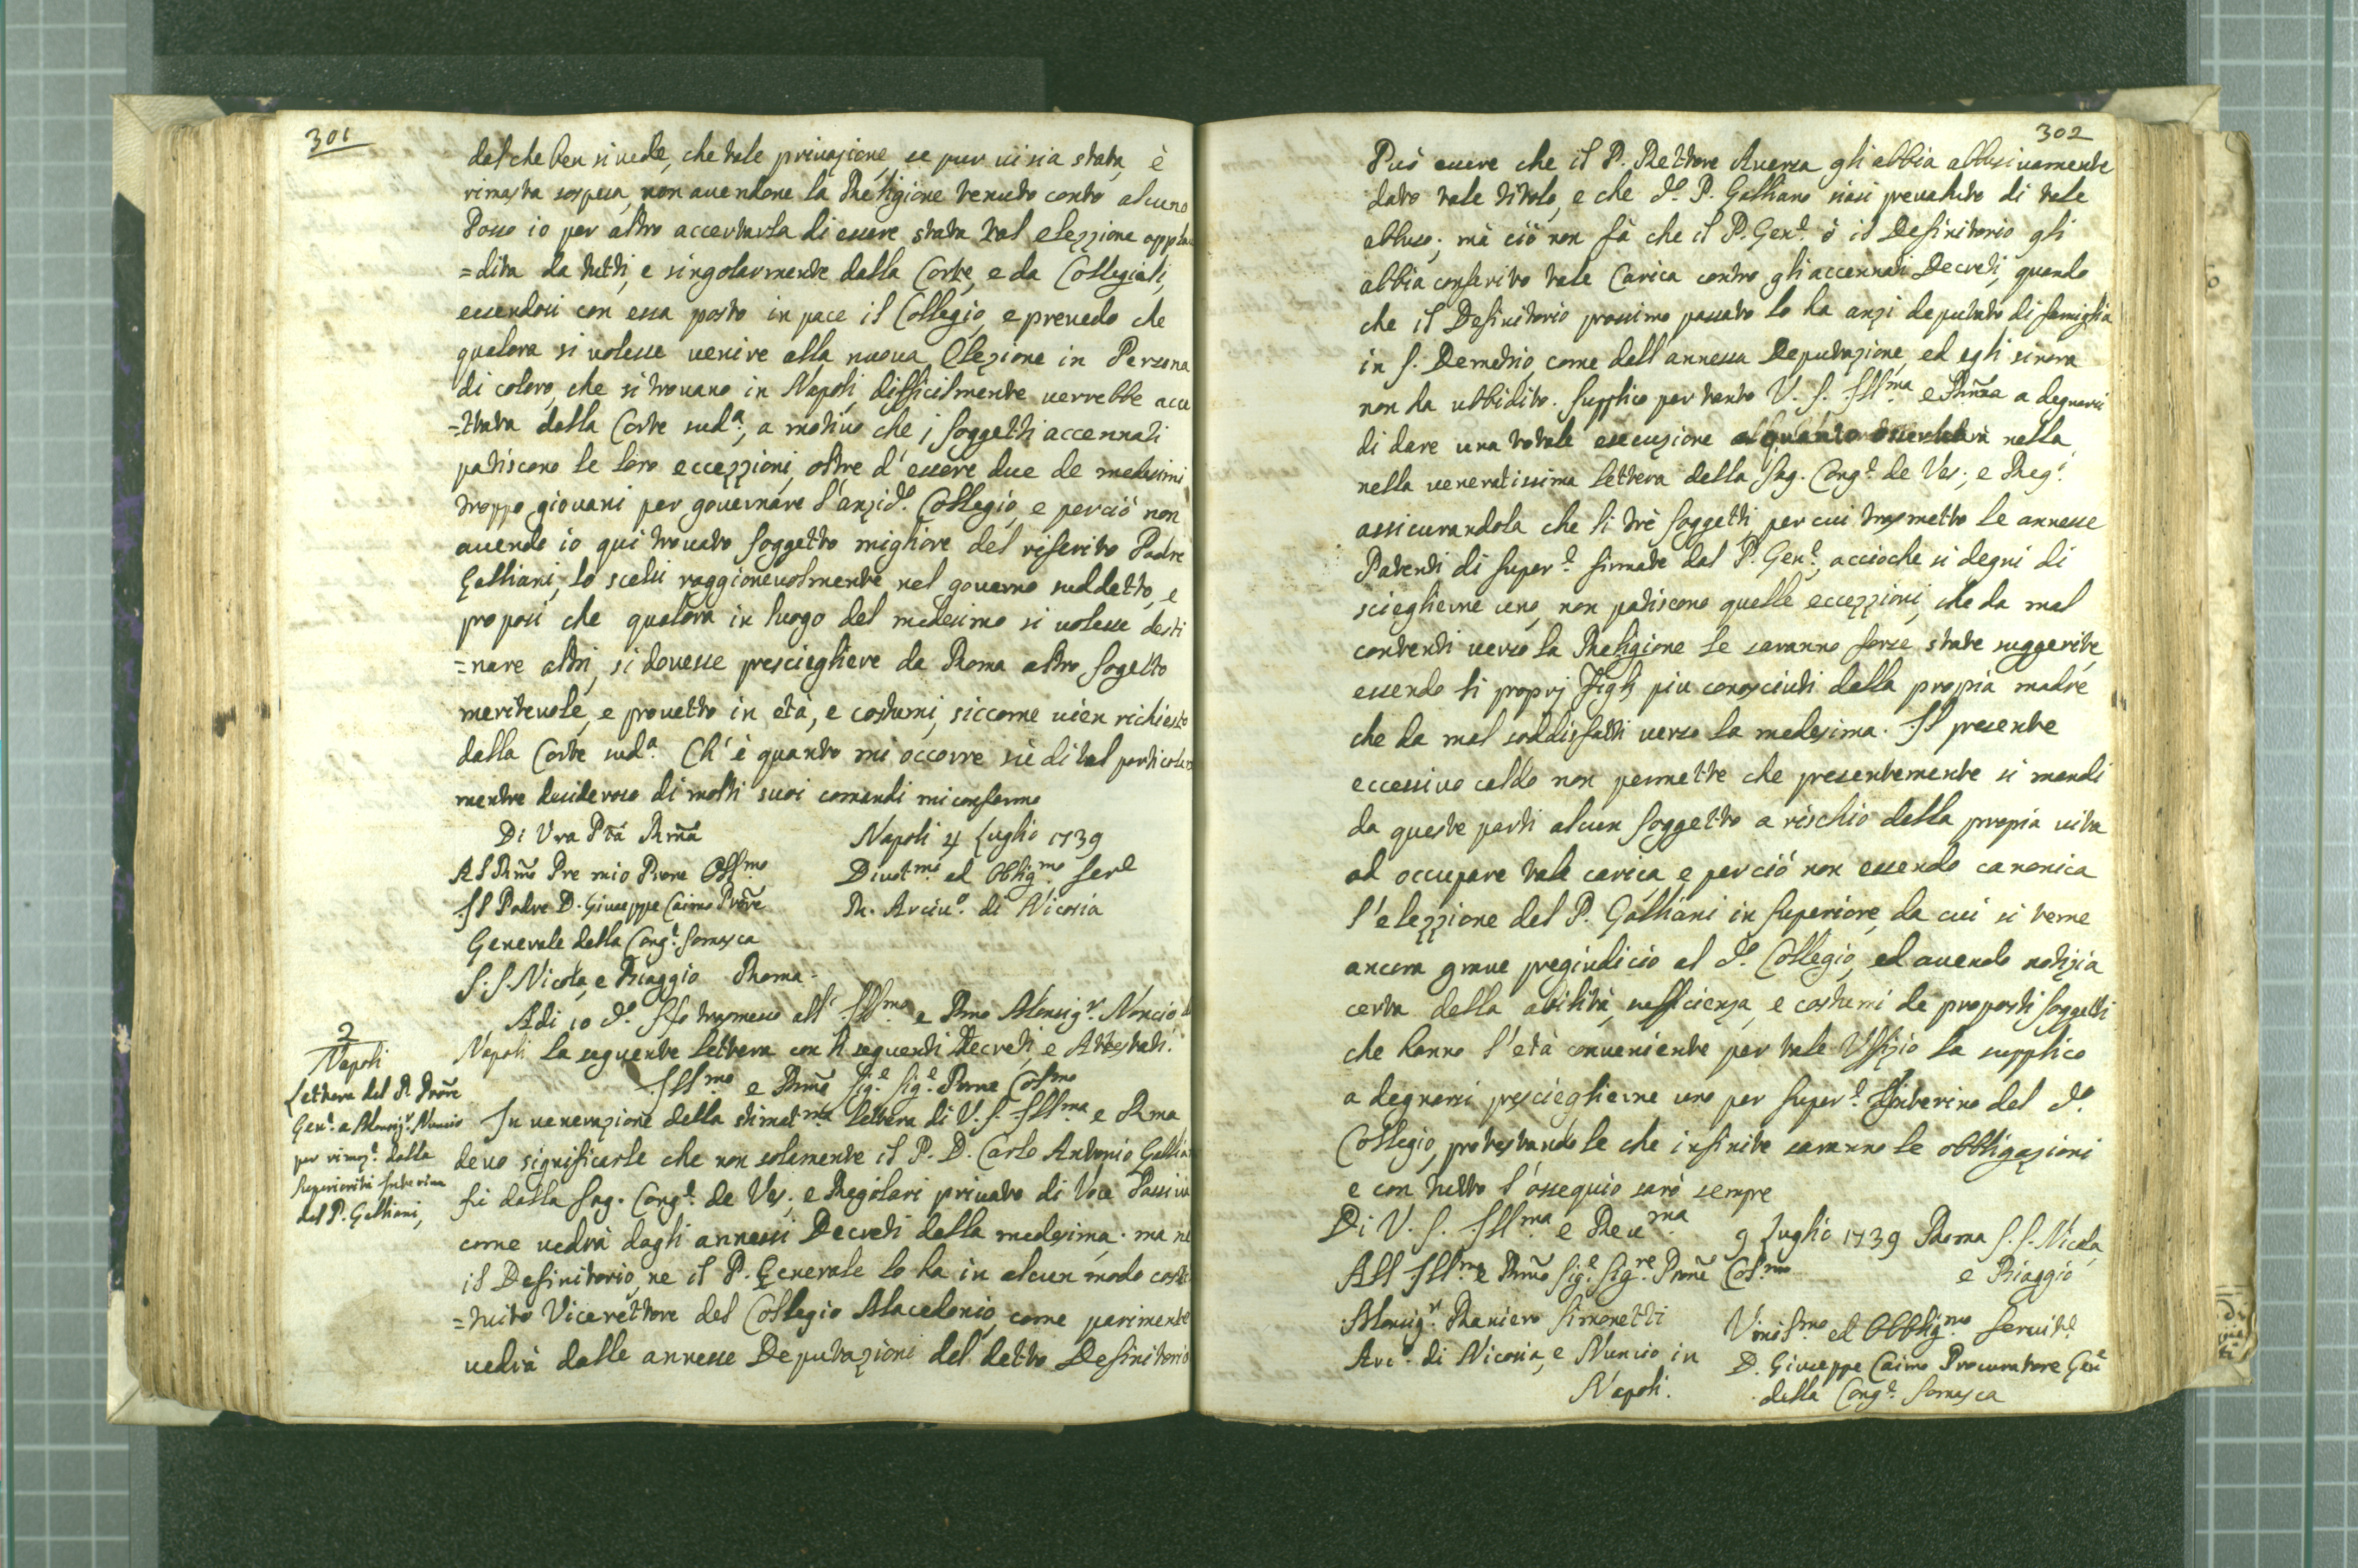 301
dal che ben si vede, che tale privazione, se pur vi sia stata, è
rimasta sospesa, non avendone la Religione tenuto conto alcuno
Posso io per altro accertarla di essere stata tal elezzione appla
=dita da tutti, e singolarmente dalla Corte, e da Collegiali,
essendosi con essa posto in pace il Collegio, e prevedo che
qualora si volesse venire alla nuova Elezione in Persona
di coloro, che si trovano in Napoli, difficilmente verrebbe acce
=ttata dalla Corte sud.ª, a motivo che i soggetti accennati
patiscono le loro eccezzioni, oltre d'essere due de medesimi
troppo giovani per governare l'anzid.º Collegio, e perciò non
avendo io qui trovato soggetto migliore del riferito Padre
Galliani, lo scelsi raggionevolmente nel governo suddetto, e
proposi che qualora in luogo del medesimo si volesse desti
=nare altri, si dovesse prescieghere da Roma altro sogetto
meritevole, e provetto in età, e costumi, siccome vien richiesto
dalla Corte sud.ª Ch'è quanto mi occorre sù di tal particolare
mentre desideroso di molti suoi comandi mi confermo
Di Vra Ptà Rm̃a Napoli 4 Luglio 1739
Al Rm̃o Pre mio Prone Oss.mo Divot.mo ed Oblig.mo ser.e
Il Padre D. Giuseppe Caimo Prõre R. Arciv.º di Nicosia
Generale della Cong.e Somasca
S.S. Nicola, e Biaggio Roma.
2
Adi 10 d.º Ho trasmesso all' Ill.mo e Rmo Monsig.r Noncio di
Napoli
Napoli la seguente lettera con li seguenti Decreti, e Attestati.
Lettera del P. Prõre
Gen.e a Monsig.r Nuncio
per rimoz.e dalla
Superiorità Interina
del P. Galliani,
Ill.mo e Rm̃o Sig.e Sig.e Prone Col.mo
In venerazione della stimat.ma lettera di V. S. Ill.ma e Rma
devo significarle che non solamente il P. D. Carlo Antonio Gallia
fù dalla Sag. Cong.e de Ves. e Regolari privato di Voce Passiva
come vedrà dagli annessi Decreti della medesima. ma nè
il Definitorio, ne il P. Generale lo ha in alcun modo costi
=tuito Vicerettore del Collegio Macedonio, come parimente
vedrà dalle annesse Deputazioni del detto Definitorio
302
Può essere che il P. Rettore Aversa gli abbia abbusivamente
dato tale titolo, e che d.º P. Galliano siasi prevaluto di tale
abbuso; mà ciò non fà che il P. Gen.e ò il Definitorio gli
abbia conferito tale Carica contro gli accennati Decreti, quando
che il Definitorio prossimo passato lo ha anzi deputato di famiglia
in S. Demetrio, come dall'annessa Deputazione, ed egli sinora
non ha ubbidito. Supplico per tanto V. S. Ill.ma e Rm̃a a degnarsi
di dare una totale esecuzione nella
nella veneratissima lettera della Sag. Cong.e de Ves., e Reg.i
assicurandola che li trè soggetti, per cui trasmetto le annesse
Patenti di Super.e firmate dal P. Gen.e, accioche si degni di
scieglierne uno, non patiscono quelle eccezzioni, che da mal
contenti verso la Religione le saranno forse state suggerite,
essendo li proprj Figlj piu conosciuti dalla propia madre
che da mal soddisfatti verso la medesima. Il presente
eccessivo caldo non permette che presentemente si mandi
da queste parti alcun soggetto a rischio della propia vita
ad occupare tale carica, e perciò non essendo canonica
l'elezzione del P. Galliani in Superiore, da cui si teme
ancora grave pregiudicio al d.º Collegio, ed avendo notizia
certa della abilità, sufficienza, e costumi de proposti soggetti
che hanno l'età conveniente per tale Uffizio la supplico
a degnarsi prescieglierne uno per Super.e Interino del d.º
Collegio, protestandole che infinite saranno le obbligazioni
e con tutto l'ossequio sarò sempre
Di V. S. Ill.ma e Rev.ma 9 Luglio 1739 Roma S.S. Nicola,
All Ill.mo e Rm̃o Sig.e Sig.re Prone Col.mo e Biaggio
Monsig.r Raniero Simonetti Umil.mo ed Obblig.mo Servit.e
Arc.º di Nicosia, e Nuncio in D. Giuseppe Caimo Procuratore Gen.e
Napoli. della Cong.e Somasca